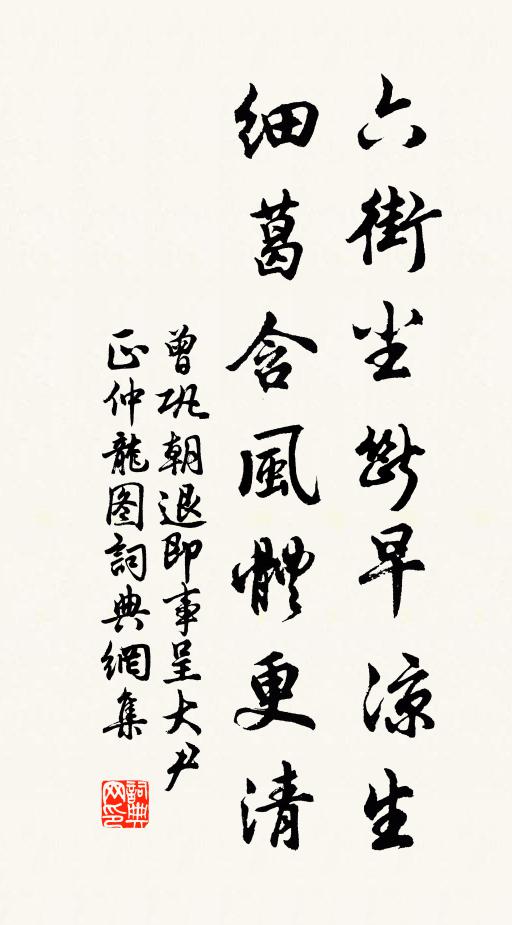 六街尘断早凉生
细葛含風體更清
曾巩朝退即事呈大尹
正仲龍图詞典網集
詞典网印